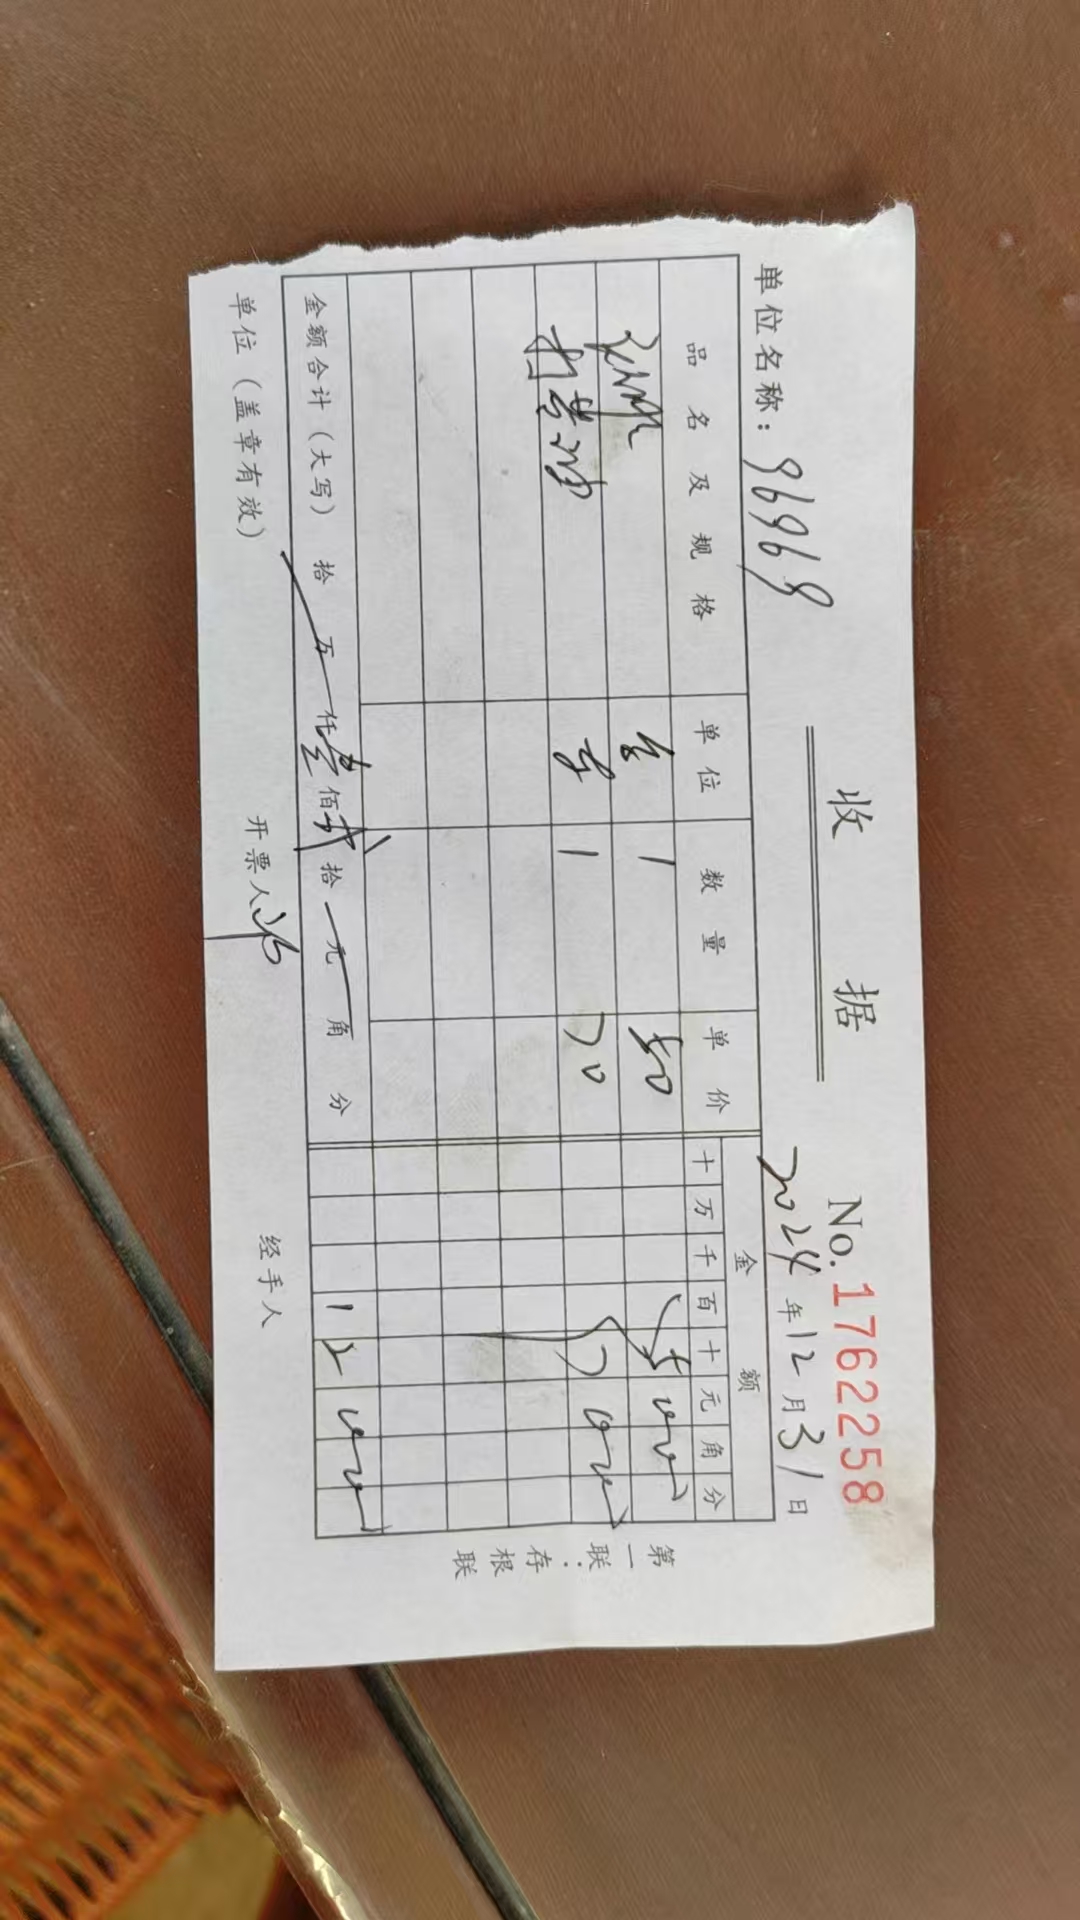 收 据
No. 1762258
单位名称: 96969
2024 年 12 月 31 日
品 名 及 规 格 单 位 数 量 单 价 金 额
十 万 千 百 十 元 角 分
1 50 5 0 0 0
1 70 7 0 0 0
金额合计(大写) 拾 万 仟 壹 佰 贰 拾 元 角 分 1 2 0 0 0
单位(盖章有效) 开票人 经手人
第一联:存根联